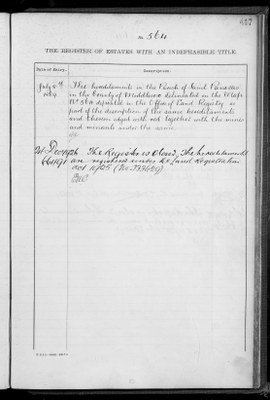 No 564
THE REGISTER OF ESTATES WITH AN INDEFEASIBLE TITLE.
Date of Entry. Description.
July
The hereditaments in the Parish of Saint Pancras
in the County of Middlesex delineated on the Map
No 564 deposited in the Office of Land Registry as
part of the description of the same hereditaments
and thereon edged with red together with the mines
and minerals under the same.
The Register is Closed, The hereditaments
are registered under the Land Registration
Act 1925